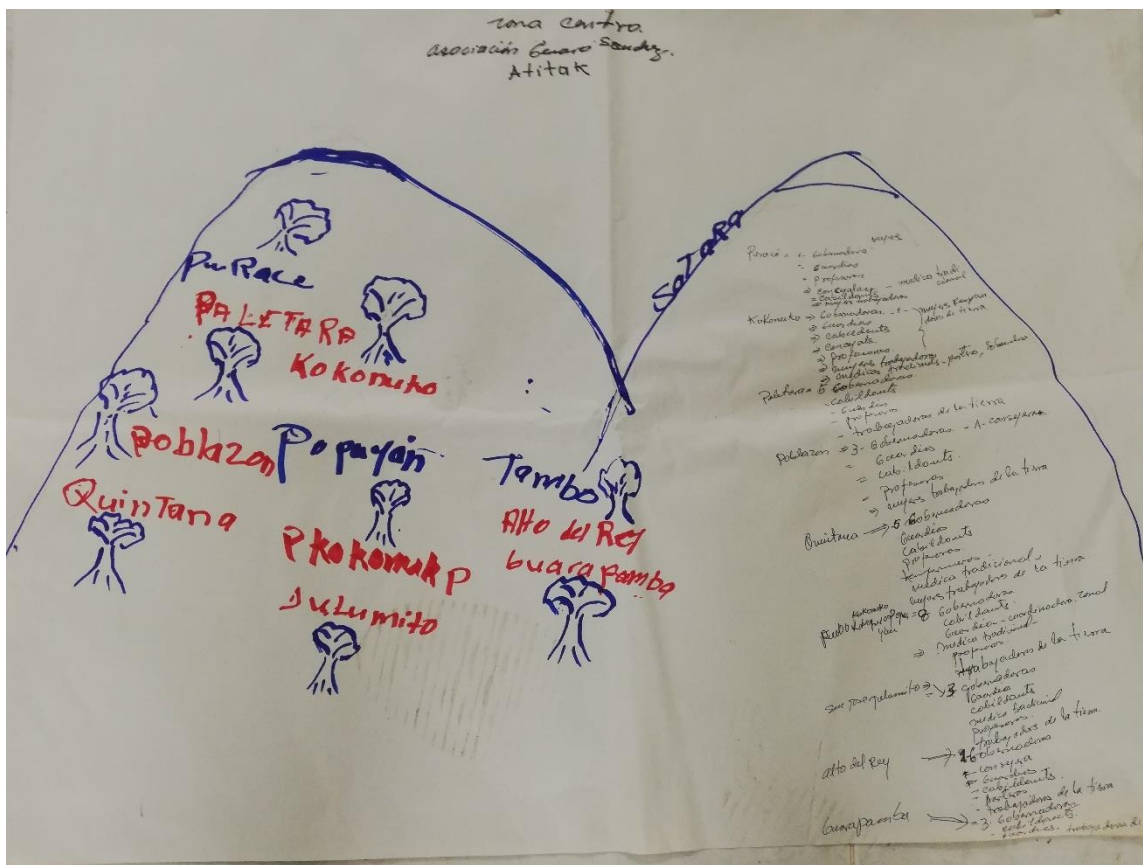 zona centro.
asociación Genaro Sanchez.
Atitak
PuRace
PALETARA
Kokonuko
poblazon
Popuyán
QuinTana
Pkokonuko P
Julumito
Tambo
Alto del Rey
Guarapamba
SoTaRa
Puracé = 1- Gobernadora mujer
= Guardias
= profesoras
= cabildants - medico tradicional
Kokonuko => Gobernadoras - 1 -
=> Guardias
=> cabildants
=> concejala
=> profesoras
=> mujeres trabajadoras
=> médicos tradicionales - partera, sobandera
Paletara 5 Gobernadoras
- cabildants
- Guardias
- profesoras
- trabajadoras de la tierra
poblazon => 3- Gobernadoras - 1- consejera
= Guardias
= cabildants.
= profesoras
=> mujeres trabajadoras de la tierra
Quintana => 5 Gobernadoras
Guardias
Cabildants
profesoras
enfermeras
medico tradicional
mujeres trabajadoras de la tierra
pueblo kokonuko = 8 Gobernadoras
cabildants.
Guardia - coordinadora zonal
=> medico tradicional
profesoras
trabajadoras de la tierra
san jose julumito => 3 gobernadoras
Guardia
cabildants
medico tradicional
profesoras.
trabajadoras de la tierra.
alto del Rey => Gobernadoras
consejera
Guardias
- cabildants.
- trabajadoras de la tierra
Guarapamba => 3 Gobernadoras
- cabildants.
- guardias. trabajadoras de